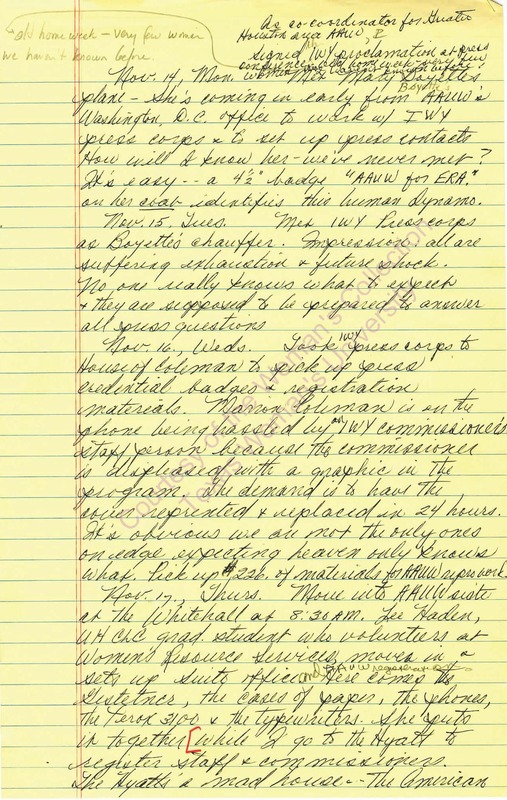 "old home week - very few women
we haven't known before.
As co-coordinator for Greater
Houston area AAUW, I
signed IWY proclamation at press
conference.
Nov. 14, Mon. Met Mary Boyette's
plane - She's coming in early from AAUW's
Washington, D.C. office to work w/ IWY
press corps & to set up press contacts
How will I know her - we've never met?
It's easy -- a 4½" badge "AAUW for ERA."
on her coat identifies this human dynamo.
Nov. 15, Tues. Met IWY Press corps
as Boyette's chauffer. Impression: all are
suffering exhaustion & future shock.
No one really knows what to expect
& they are supposed to be prepared to answer
all press questions
Nov. 16, Weds. Took IWY press corps to
House of Coleman to pick up press
credential badges & registration
materials. Mamon Coleman is on the
phone being hassled by an IWY commissioner's
staff person because the commissioner
is displeased with a graphic in the
program. The demand is to have the
cover reprinted & replaced in 24 hours.
It's obvious we are not the only ones
on edge, expecting heaven only knows
what. Pick up $226. of materials for AAUW repro work.
Nov. 17, Thurs. Move into AAUW suite
at the Whitehall at 8:30 AM. Lee Haden,
UH CLC grad student who volunteers at
Women's Resource Services, moves in &
sets up suite office and AAUW registration. Here comes the
Distetner, the cases of paper, the phones,
the Xerox 3100 & the typewriters. She puts
it together [while I go to the Hyatt to
register staff & commissioners.
The Hyatt's a mad house -- The American
Courtesy of the Woman's Collection
Texas Woman's University